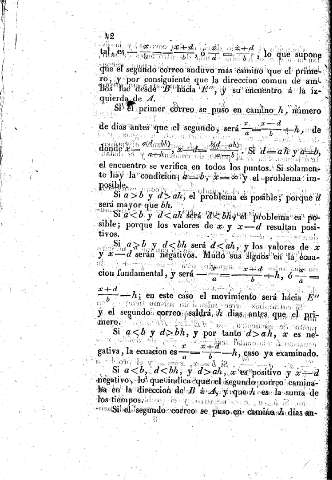 42
tal, es x/a = x+d/b, ó x/a = x+d/b, lo que supone
que el segundo correo anduvo mas camino que el prime-
ro, y por consiguiente que la direccion comun de am-
bos fue desde B hácia E", y su encuentro á la iz-
quierda de A.
Si el primer correo se puso en camino h, número
de dias antes que el segundo, será x/a = x—d/b + h, de
donde x = a(d—bh)/a—b, x—d = b(d—ah)/a—b. Si d=ah y a=b,
el encuentro se verifica en todos los puntos. Si solamen-
to hay la condicion a=b, x=∞ y el problema im-
posible.
Si a>b y d>ah, el problema es posible; porque d
será mayor que bh.
Si a<b y d<ah será d<bh, el problema es po-
sible; porque los valores de x y x—d resultan posi-
tivos.
Si a>b y d<bh será d<ah, y los valores de x
y x—d serán negativos. Mudo sus signos en la ecua-
cion fundamental, y será —x/a = —x+d/b + h, ó x/a =
x+d/b —h; en este caso el movimiento será hácia E"
y el segundo correo saldrá h dias antes que el pri-
mero.
Si a<b y d>bh, y por tanto d>ah, x es ne-
gativa, la ecuacion es x/a = x+d/b —h, caso ya examinado.
Si a<b, d<bh, y d>ah, x es positivo y x—d
negativo, lo que indica que el segundo correo camina-
ba en la direccion de B á A, y que h es la suma de
los tiempos.
Si el segundo correo se puso en camino h dias an-